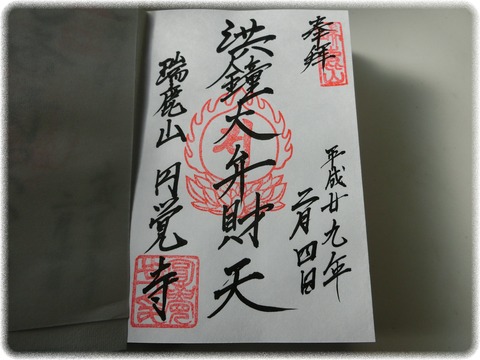 奉拝
平成廿九年
二月四日
洪鐘大弁財天
瑞鹿山 円覚寺